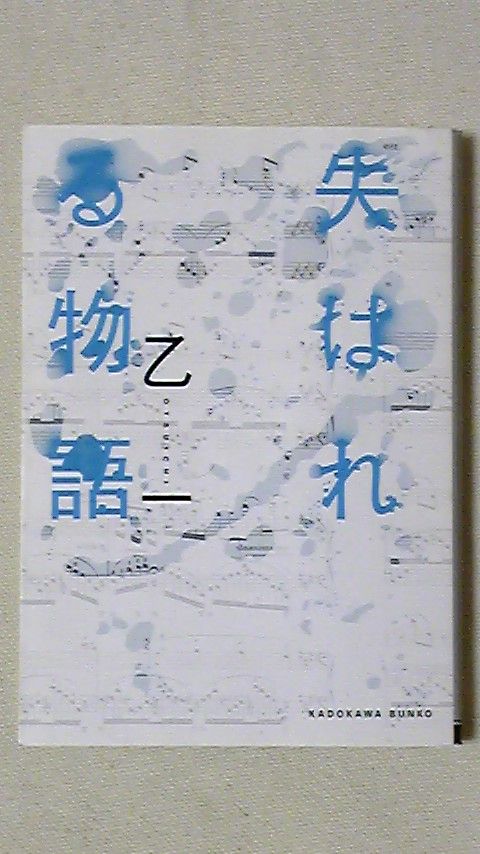 失はれ
る物語
乙一
OTSUICHI
KADOKAWA BUNKO